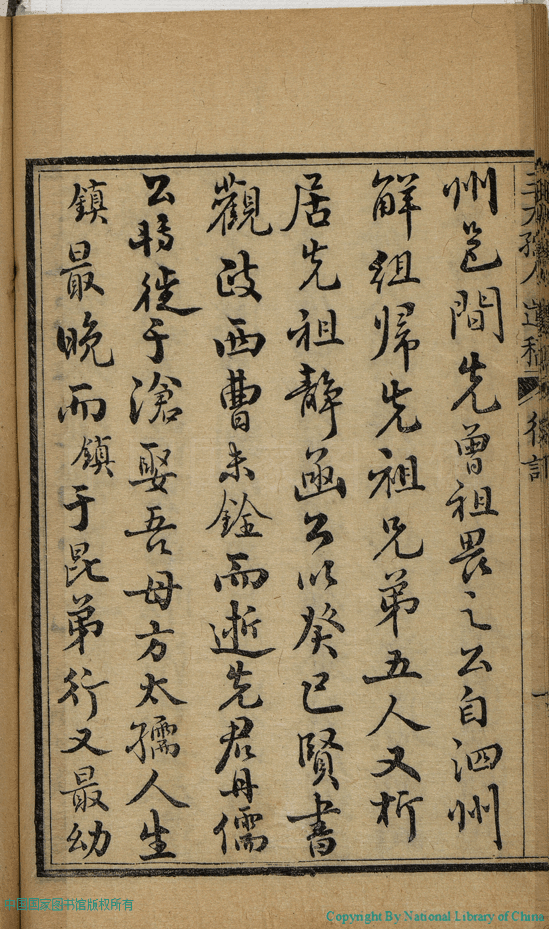 州邑間先曾祖畏之公自泗州
解组歸先祖兄弟五人又析
居先祖靜函公以癸巳賢書
觀政西曹未銓而逝先君丹儒
公時徙于滄娶吾母方太孺人生
鎮最晚而鎮于昆弟行又最幼
遺稿
後記
中国国家图书馆版权所有
Copyright By National Library of China